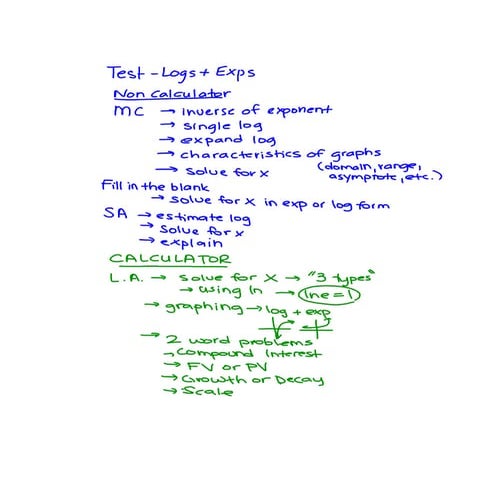 Test - Logs + Exps
Non Calculator
MC → inverse of exponent
→ single log
→ expand log
→ characteristics of graphs
(domain, range,
asymptote, etc.)
→ solve for x
Fill in the blank
→ solve for x in exp or log form
SA → estimate log
→ solve for x
→ explain
CALCULATOR
L.A. → solve for x → "3 types"
→ using ln → lne = 1
→ graphing → log + exp
→ 2 word problems
→ Compound Interest
→ FV or PV
→ Growth or Decay
→ Scale